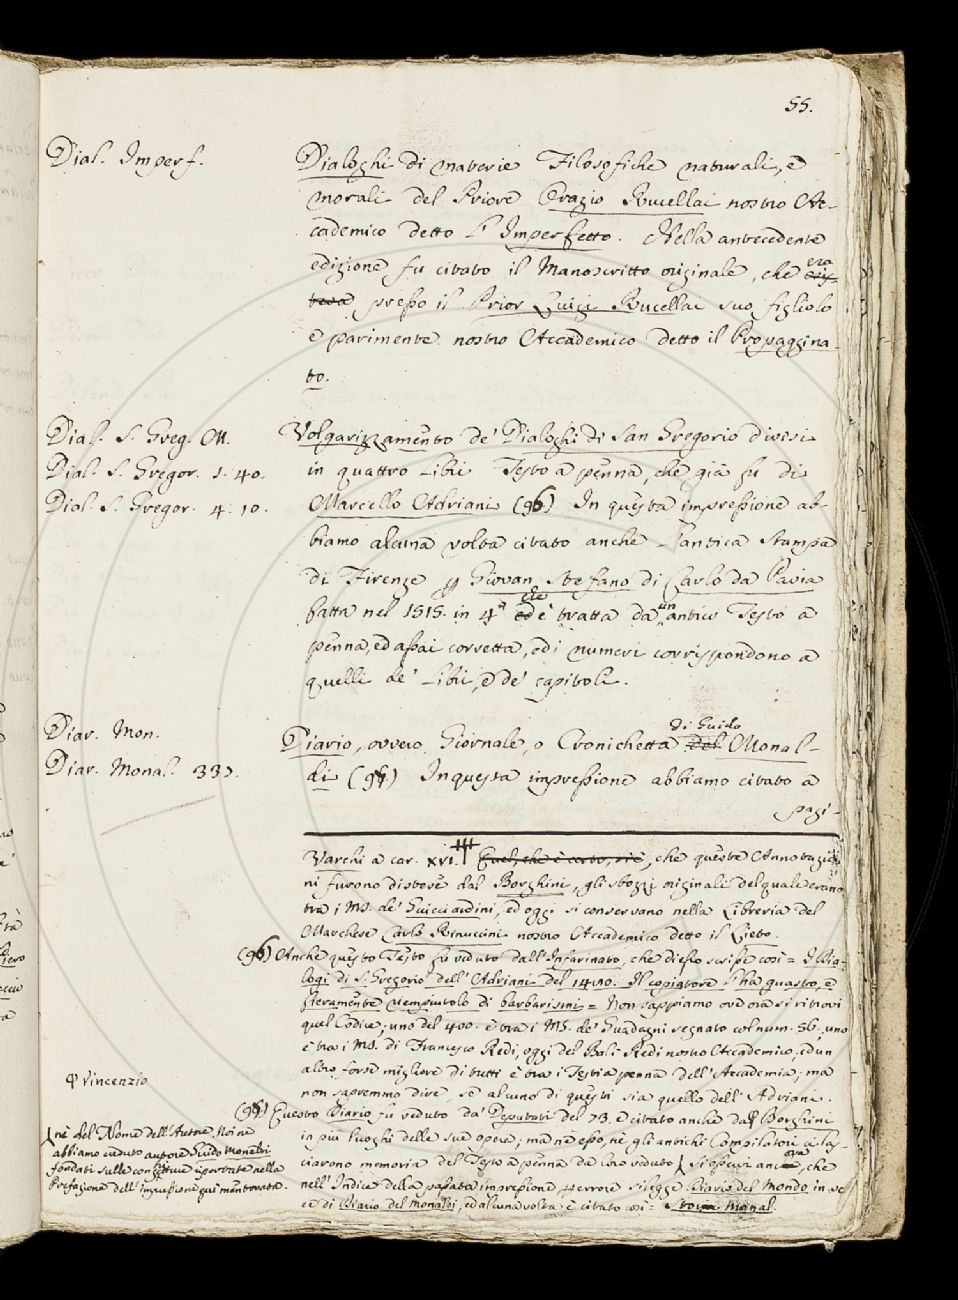 55.
Dial. Imperf.
Dialoghi di materie Filosofiche naturali, e
morali del Priore Orazio Rucellai nostro Ac-
cademico detto l'Imperfetto. Nella antecedente
edizione fu citato il Manoscritto originale, che era
presso il Prior Luigi Rucellai suo figliolo
e parimente nostro Accademico detto il Propaggina-
to.
Dial. S. Greg. M.
Dial. S. Gregor. 1. 40.
Dial. S. Gregor. 4. 10.
Volgarizzamento de' Dialoghi di San Gregorio divisi
in quattro Libri Testo a penna, che già fu di
Marcello Adriani (96) In questa impressione ab-
biamo alcuna volta citato anche l'antica stampa
di Firenze Giovan Stefano di Carlo da Pavia
fatta nel 1515. in 4° che è tratta da un antico Testo a
penna, ed assai corretta, ed i numeri corrispondono a
quelli de' Libri, e de' capitoli.
Diar. Mon.
Diar. Monal. 337.
Diario, ovvero Giornale, o Cronichetta di Guido del Monal-
di (97) In questa impressione abbiamo citato a
pagi-
Varchi a car. XVI. Quel, che è certo, si è, che queste Annotazio
ni furono distese dal Borghini, gli sbozzi originali del quale erano
tra i MS. de' Guicciardini, ed oggi si conservano nella Libreria del
Marchese Carlo Rinuccini nostro Accademico detto il Lieto.
(96) Anche questo Testo fu veduto dall'Infarinato, che di esso scrisse così = I Dia-
logi di S. Gregorio dell'Adriani del 1400. Il copiatore l'ha guasto, e
fieramente riempiutolo di barbarismi = Non sappiamo ove ora si ritrovi
quel Codice; uno del 400. è tra i MS. de' Guadagni segnato col num. 56., uno
è tra i MS. di Francesco Redi, oggi del Balì Redi nostro Accademico, ed un
altro forse migliore di tutti è tra i Testi a penna dell'Accademia; ma
non sapremmo dire, se alcuno di questi sia quello dell'Adriani.
Vincenzio
(97) Questo Diario fu veduto da' Deputati del 73. e citato anche dal Borghini
in più luoghi delle sue opere; ma nè esso, nè gli antichi Compilatori ci la-
sciarono memoria del Testo a penna da loro veduto si osservi ancora, che
nell'Indice della passata impressione errore si legge Diario del Mondo in ve
ce di Diario del Monaldi, ed alcuna volta è citato così = Monal.
nè del Nome dell'Autore. Noi ne
abbiamo creduto autore Guido Monaldi
fondati sulle congetture riportate nella
Prefazione dell'impressione qui mentovata.